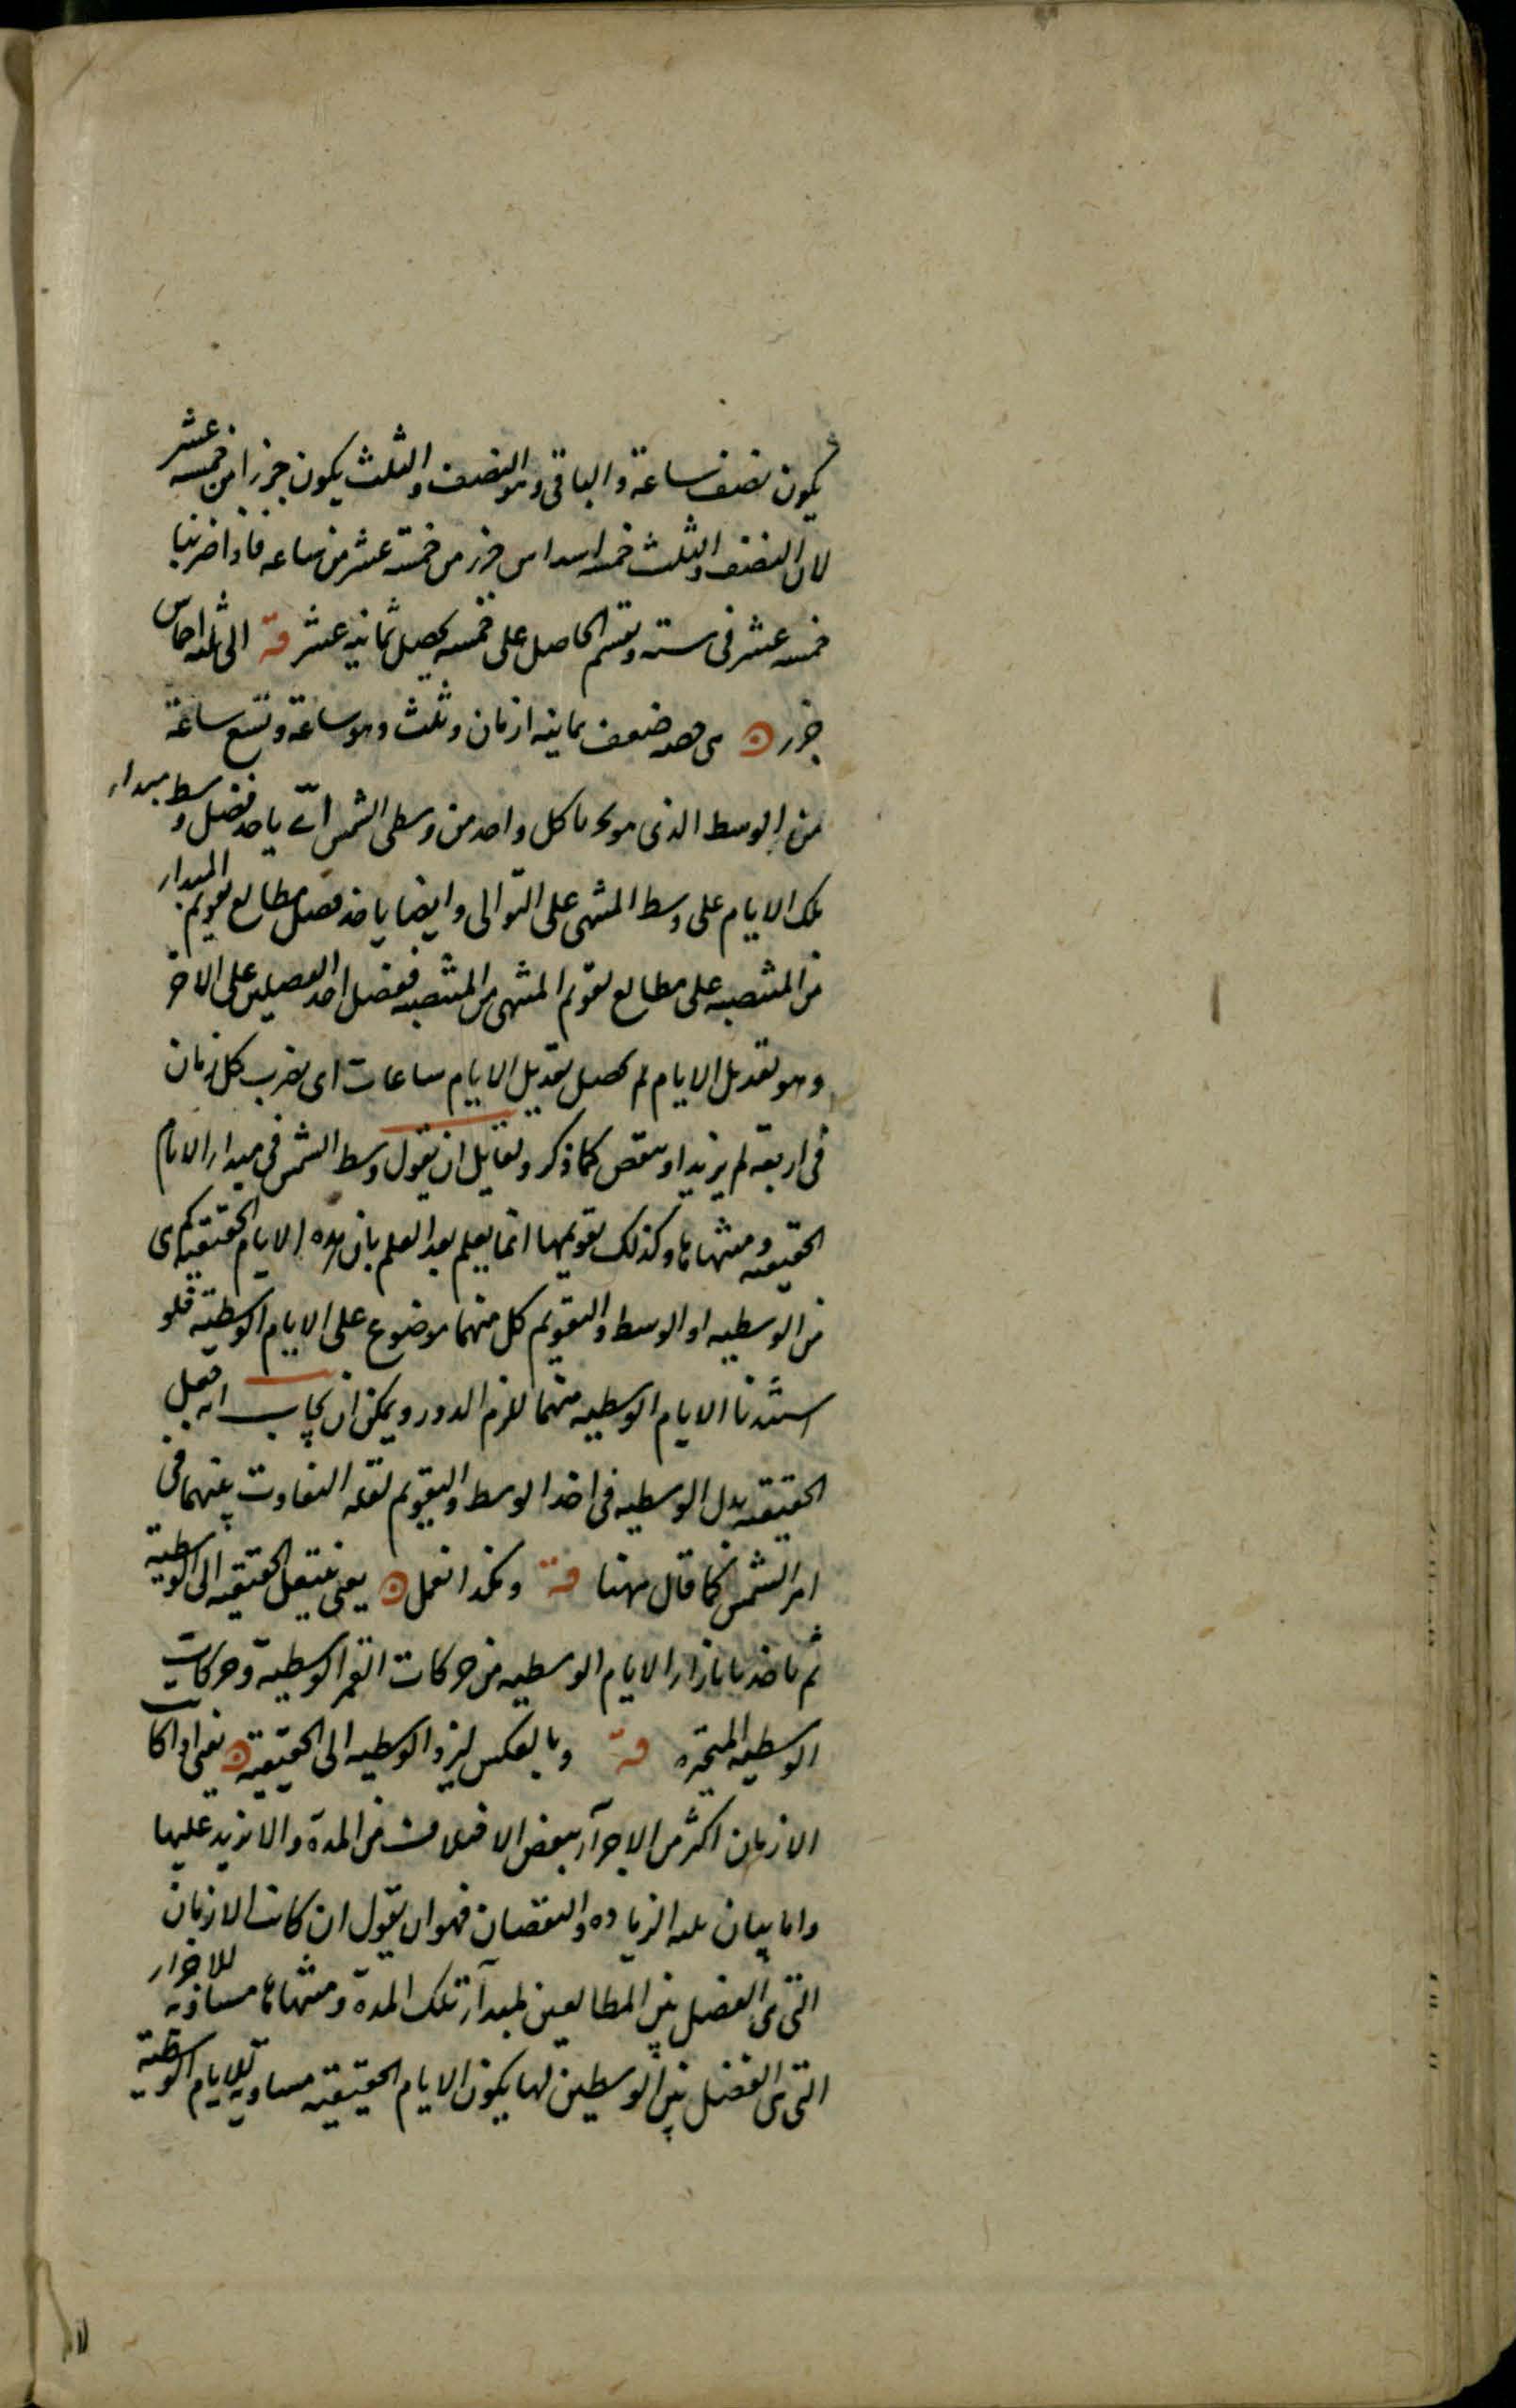 يكون نصف ساعة والباقى وهو النصف والثلث يكون جزرا من خمسه عشر
لان النصف والثلث خمسه اسداس جزر من خمسة عشر من ساعه فاذا ضربنا
خمسه عشر فى سته وقسم الحاصل على خمسه يحصل ثمانيه عشر قه الى ثلثه اخماس
جزر ضعف ثمانيه ازمان وثلث وهو ساعة وتسع ساعة
من الوسط الذى كل واحد من وسطى الشمس اى ياخذ فضل وسط مبدا
تلك الايام على وسط المنتهى على التوالى وايضا ياخذ فضل مطالع تقويم المبدا
من المنتصبه على مطالع تقويم المنتهى من المنتصبه ففضل احد الفضلين على الاخر
وهو تعديل الايام ثم يحصل تعديل الايام ساعات اى يضرب كل زمان
فى اربعة ثم يزيد او ينقص كما ذكر ولقايل ان يقول وسط الشمس فى مبدا الايام
الحقيقيه ومنتهاها وكذلك تقويمها انما يعلم بعد العلم بان هذه الايام الحقيقيه كم هى
من الوسطيه اذ الوسط والتقويم كل منهما موضوع على الايام الوسطية فلو
استفدنا الايام الوسطيه منهما للزم الدور ويمكن ان يجاب انه قيل
الحقيقيه بدل الوسطيه فى اخذ الوسط والتقويم لقله التفاوت بينهما فى
امر الشمس كما قال مهنا قه وهكذا نعمل يعنى ننقل الحقيقيه الى الوسطية
ثم ناخذ ما بازار الايام الوسطيه من حركات القمر الوسطية وحركات
الوسطيه المتحيره قه وبالعكس لنرد الوسطيه الى الحقيقية يعنى اذا كا
الازمان اكثر من الاجرآر ينقص الاختلاف من المدة والا نزيد عليها
واما بيان هذه الزياده والنقصان فهو ان نقول ان كانت الازمان
التى هى الفضل بين المطالعين لمبدآر تلك المدة ومنتهاها مساويه للاجزار
التى هى الفضل بين الوسطين لها يكون الايام الحقيقيه مساويه للايام الوسطية